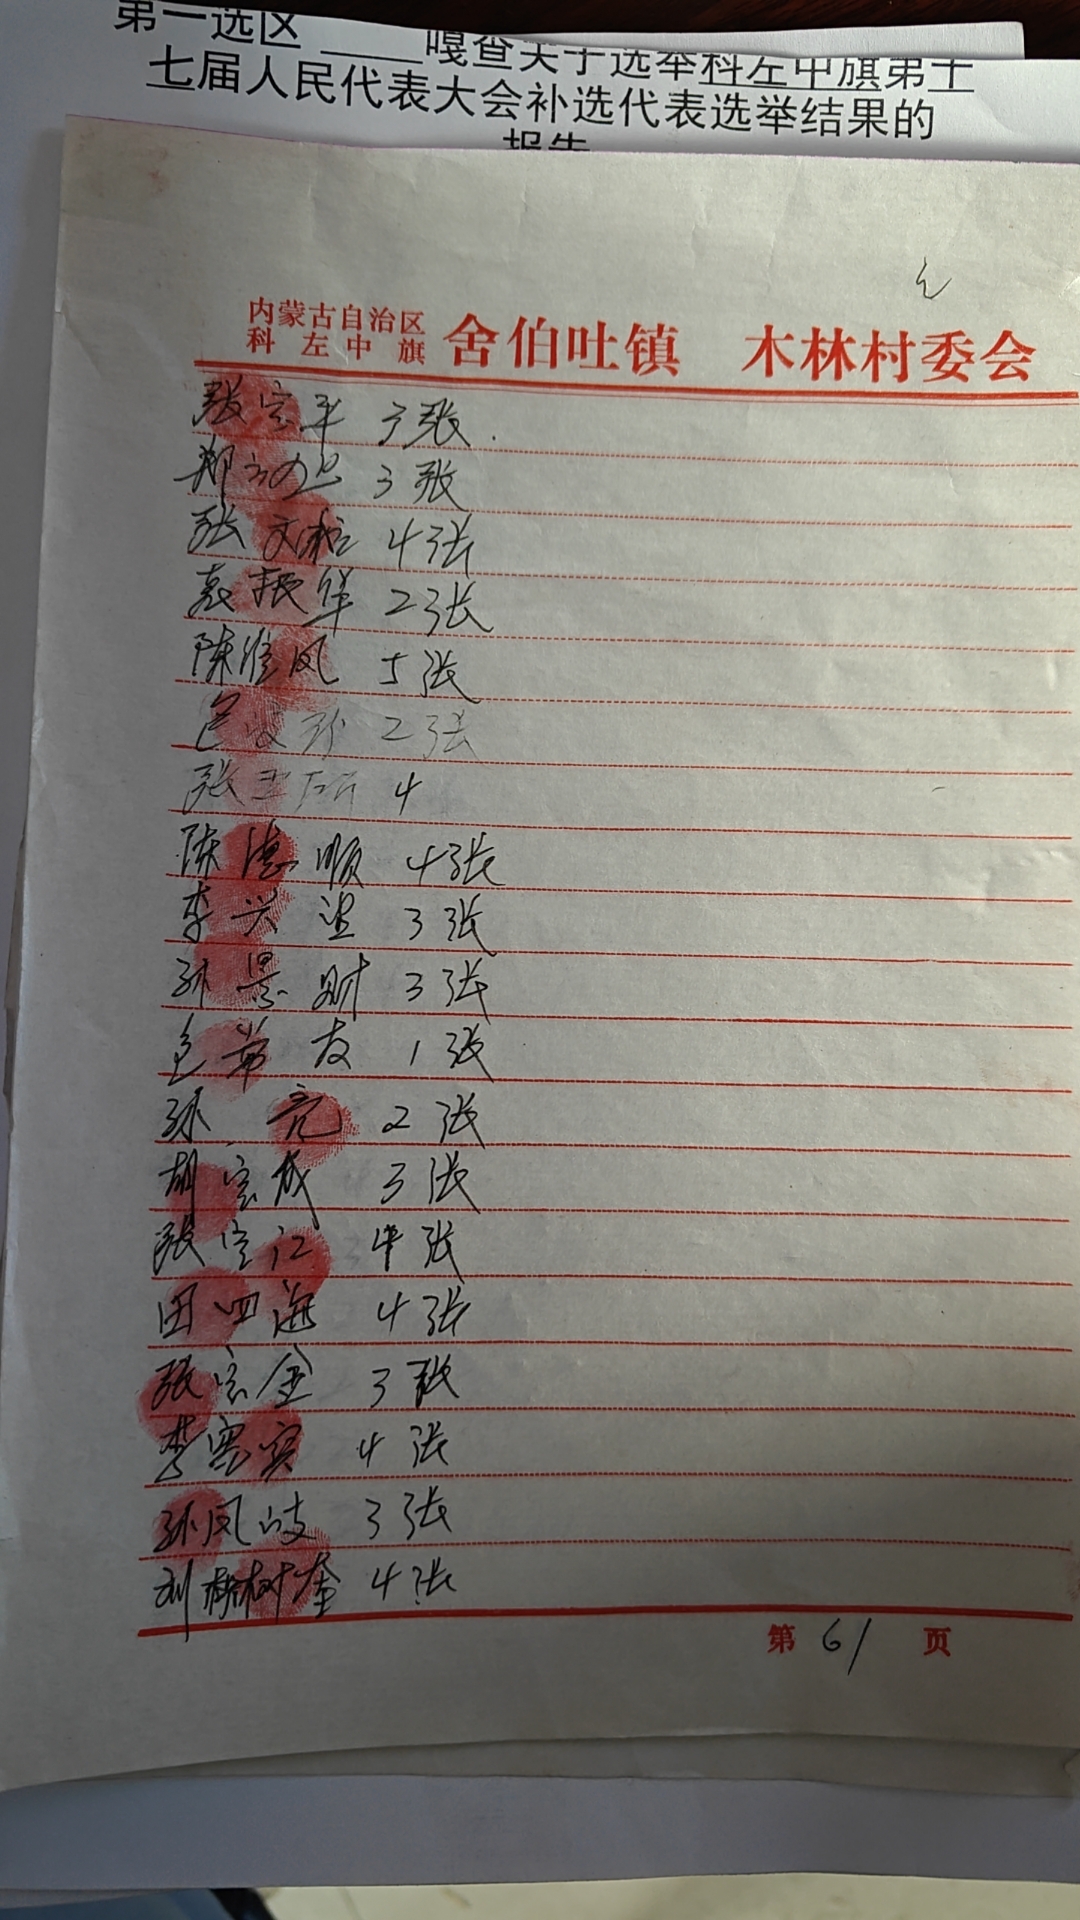 第一选区 ____嘎查关于选举科左中旗第十
七届人民代表大会补选代表选举结果的
报告
内蒙古自治区
科左中旗
舍伯吐镇 木林村委会
张宝军 3张
郑 3张
张文 4张
袁振军 2张
陈淮凤 5张
包 2张
张 4
陈德顺 4张
李兴 3张
孙景财 3张
包 友 1张
孙亮 2张
胡宝成 3张
张宝江 4张
田四海 4张
张宝金 3张
李宝 4张
孙凤岐 3张
刘树奎 4张
第61页